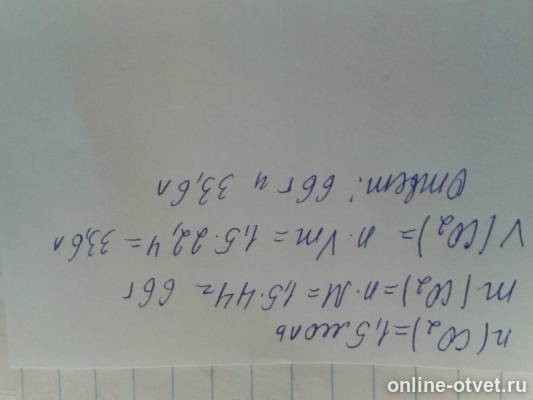 n(CO₂)=1,5 моль
m(CO₂)=n·M=1,5·44= 66 г
V(CO₂)= n·Vm=1,5·22,4 = 33,6 л
Ответ: 66 г и 33,6 л
online-otvet.ru